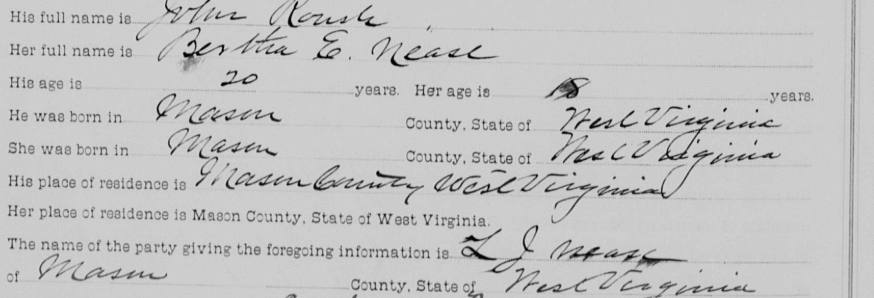 His full name is John Roush
Her full name is Bertha E. Nease
His age is 20 years. Her age is 18 years.
He was born in Mason County, State of West Virginia
She was born in Mason County, State of West Virginia
His place of residence is Mason County West Virginia
Her place of residence is Mason County, State of West Virginia.
The name of the party giving the foregoing information is L J Nease
of Mason County, State of West Virginia